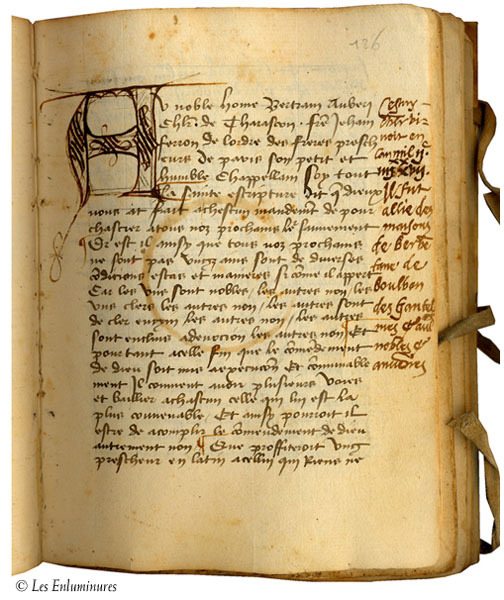 126
Au noble home Bertram Aubert
Chlr de Tharascon frere Jehan
ferron de lordre des freres presch
eurs de paris son petit et
humble Chappellain Soy tout
La sainte escripture dit q dieux
nous at fait achascun mandemt de pour
chascier atous noz prochains le sauvement
Or est il ainsy que tous noz prochains
ne sont pas vnez ains sont de diverses
condicions estas et manieres si come il appert
Car les vns sont nobles, les autres non, les
vns clers les autres non, les autres sont
de cler engin, les autres non, les autres
sont enclins a devocion les autres non, Et
pourtant acelle fin que le comendement
de dieu soit mis a execucion Et convinable
ment Il convient avoir plusieurs voies
et baillier achascun celle qui luy est la
plus convenable, Et ainsy pourroit il
estre de acomplir le comendement de dieu
autrement non, Que proffiteroit vng
prescheur en latin acelluy qui Riens ne
Il fut
allie des
maisons
de Berbe
tane de
Boulbon
des Gantel
mes
nobles
© Les Enluminures